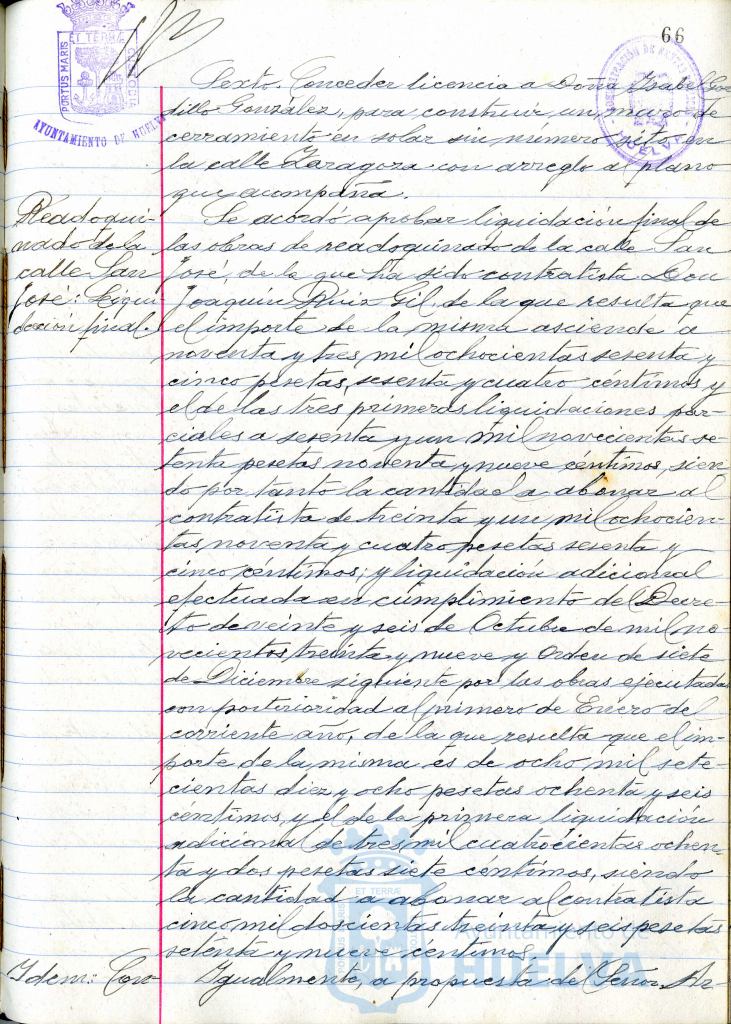 66
PORTUS MARIS ET TERRÆ CUSTODIA
AYUNTAMIENTO DE HUELVA
HUELVA
Sexto. Conceder licencia a Doña Isabel Gor-
dillo González, para construir un muro de
cerramiento en solar sin número, sito en
la calle Zaragoza con arreglo al plano
que acompaña.
Readoqui-
nado de la
calle San
José: Liqui-
dación final.
Se acordó aprobar liquidación final de
las obras de readoquinado de la calle San
José, de la que ha sido contratista Don
Joaquín Ruiz Gil, de la que resulta que
el importe de la misma asciende a
noventa y tres mil ochocientas sesenta y
cinco pesetas, sesenta y cuatro céntimos y
el de las tres primeras liquidaciones par-
ciales a sesenta y un mil novecientas se-
tenta pesetas noventa y nueve céntimos, sien-
do por tanto la cantidad a abonar al
contratista de treinta y un mil ochocien-
tas noventa y cuatro pesetas sesenta y
cinco céntimos; y liquidación adicional
efectuada en cumplimiento del Decre-
to de veinte y seis de Octubre de mil no-
vecientos treinta y nueve y Orden de siete
de Diciembre siguiente por las obras ejecutadas
con posterioridad al primero de Enero del
corriente año, de la que resulta que el im-
porte de la misma es de ocho mil sete-
cientas diez y ocho pesetas ochenta y seis
céntimos, y el de la primera liquidación
adicional de tres mil cuatrocientas ochen-
ta y dos pesetas siete céntimos, siendo
la cantidad a abonar al contratista
cinco mil doscientas treinta y seis pesetas
setenta y nueve centimos.
Idem: Con-
Igualmente, a propuesta del Señor Ar-
Ayuntamiento de
HUELVA